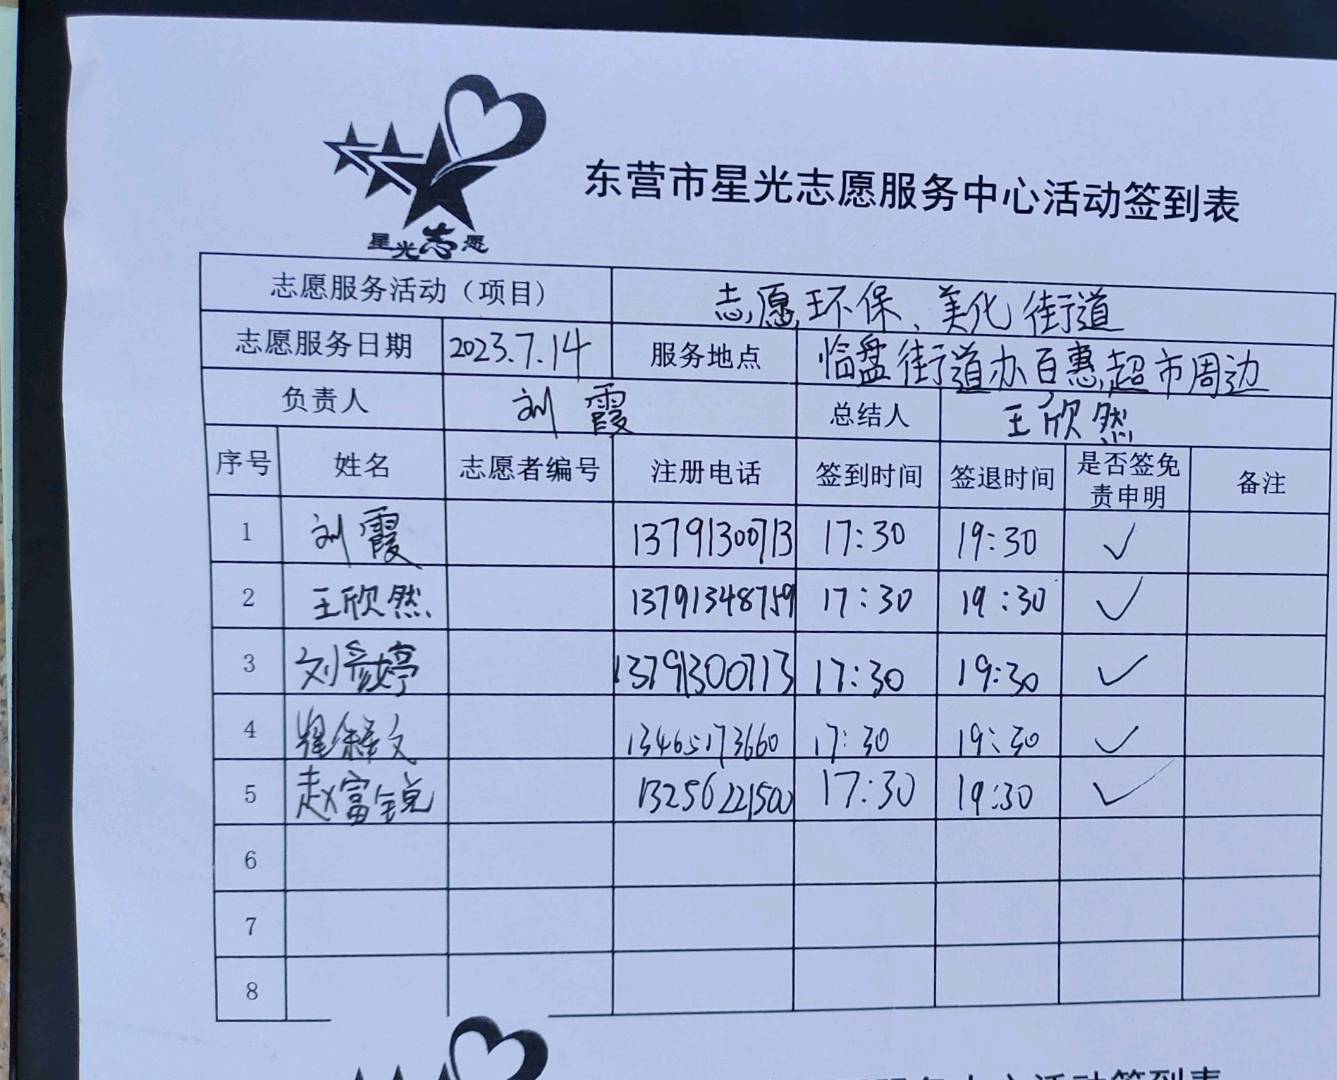 星光志愿
东营市星光志愿服务中心活动签到表
志愿服务活动（项目） 志愿环保、美化街道
志愿服务日期 2023.7.14 服务地点 临盘街道办百惠超市周边
负责人 刘霞 总结人 王欣然
序号 姓名 志愿者编号 注册电话 签到时间 签退时间 是否签免责申明 备注
1 刘霞 13791300713 17:30 19:30 ✓
2 王欣然 13791348759 17:30 19:30 ✓
3 刘彦婷 13791300713 17:30 19:30 ✓
4 13465173660 17:30 19:30 ✓
5 赵富锐 13256221500 17:30 19:30 ✓
6
7
8
活动签到表